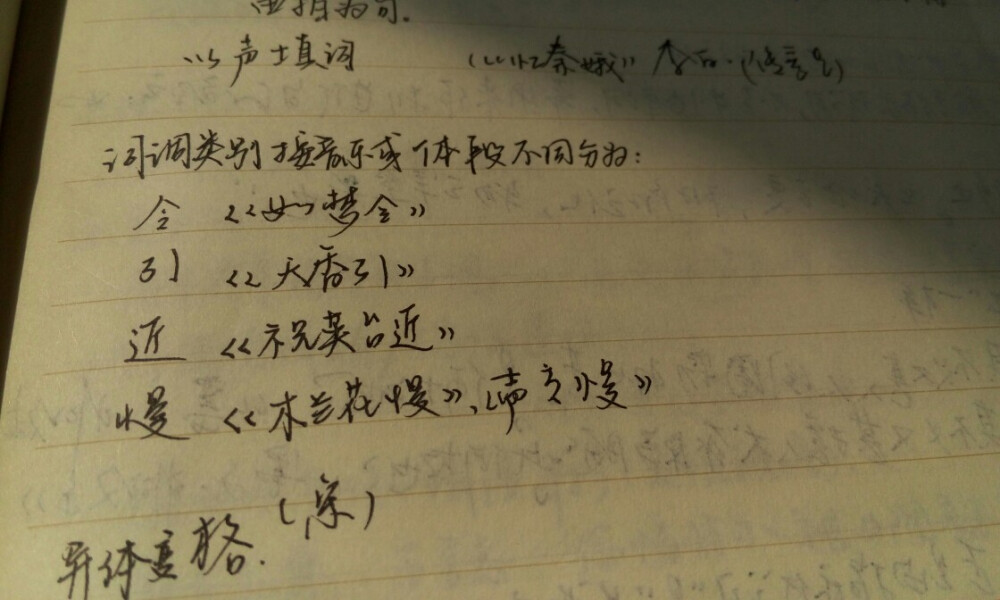 以声填词 《忆秦娥》
词调类别按音乐或体段不同分为:
令 《如梦令》
引 《天香引》
近 《祝英台近》
慢 《木兰花慢》、《声声慢》
异体变格.(宋)